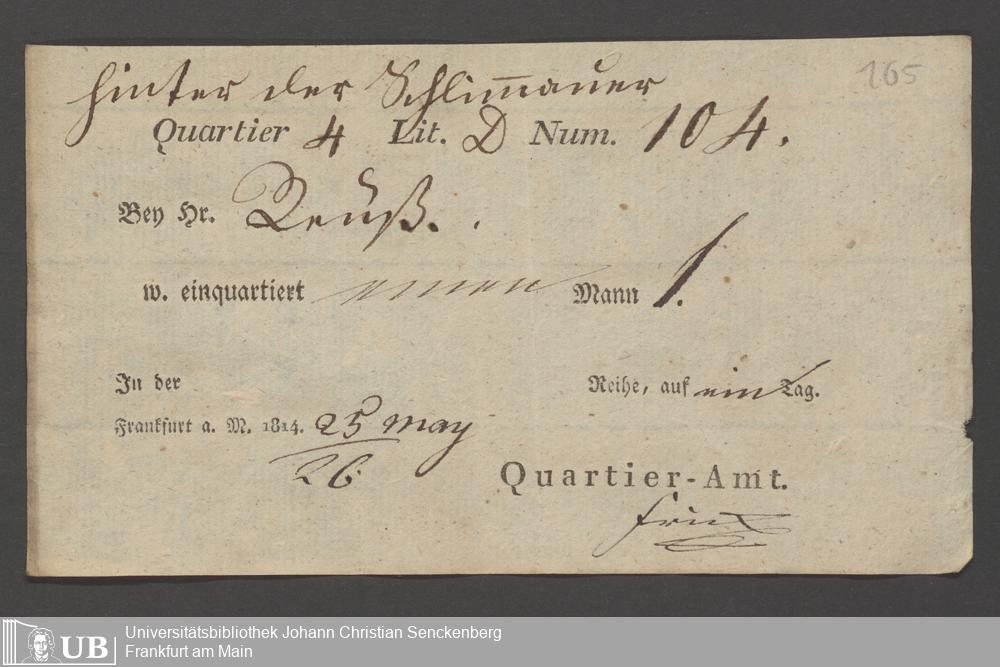 165
hinter der Schlim̄mauer
Quartier 4 Lit. D Num. 104.
Bey Hr. Reuß.
w. einquartiert einen Mann 1.
In der Reihe, auf ein Tag.
Frankfurt a. M. 1814. 25 May
26.
Quartier-Amt.
UB
Universitätsbibliothek Johann Christian Senckenberg
Frankfurt am Main